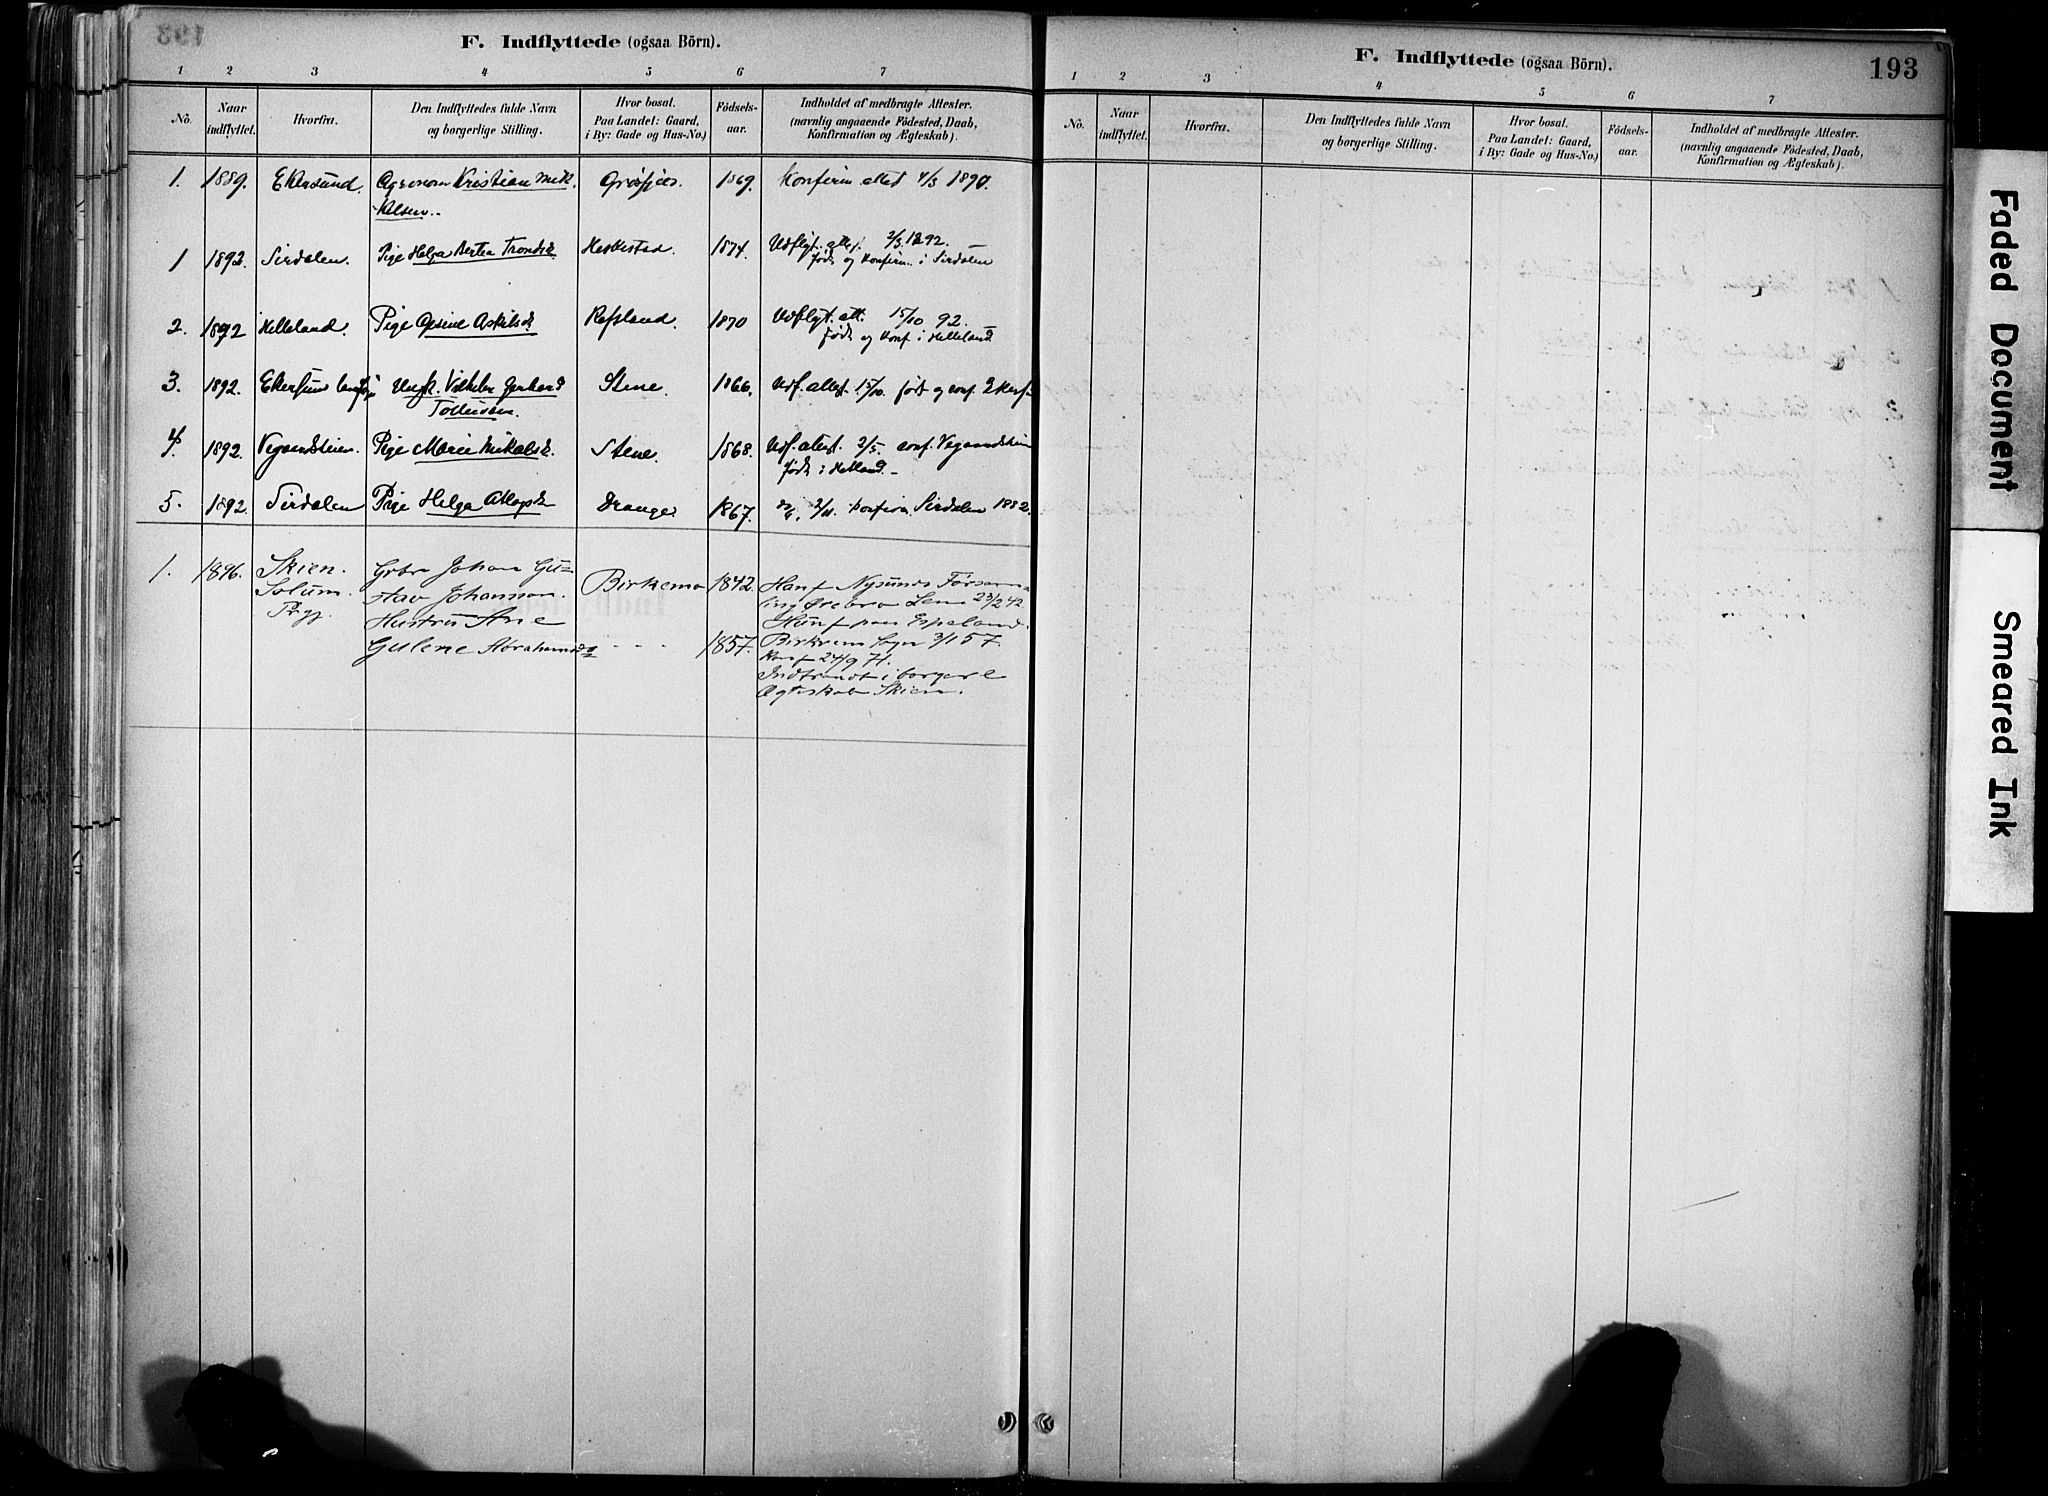 F. Indflyttede (ogsaa Börn).
1 2 3 4 5 6 7
No. Naar indflyttet. Hvorfra. Den Indflyttedes fulde Navn og borgerlige Stilling. Hvor bosat. Paa Landet: Gaard, i By: Gade og Hus-No.) Födsels-aar. Indholdet af medbragte Attester. (navnlig angaaende Födested, Daab, Konfirmation og Ægteskab).
1. 1889. Ekersund. Agronom Kristian Mik- 1869. Konfirm attest 4/3 1890.
kelsen.
1 1892. Sirdalen. Pige Helga Bertea Trondsd. Heskestad. 1874. Udflyt. attest. 2/3 1892.
født og konfirm. i Sirdalen
2. 1892 Helleland. Pige Askilsd. Refsland. 1870 Udflyt. att. 15/10 92.
født og konf. i Helleland
3. 1892. Ungk. Vilhelm Gerhard Stene. 1866. Udf. attest. 15/10 født og conf.
Tollerssen.
4. 1892. Pige Marie Mikalsd. Stene. 1868. Udf. attest. 2/5. conf.
født i
5. 1892. Sirdalen Pige Helga Drange 1867. 2/11. konfirm. Sirdalen 1882.
1. 1896. Skien. Johan Gu- Birkemo 1842. Han f Nysunds Forsam-
Solum stav Johannson. ling Ørebro Len 23/2 42.
Prgj. Hustru Ane Hun f paa Espeland.
Gulene Abrahamsd. - - - 1857. Birkrem Sogn 3/1 57.
Konf 24/9 71.
Indtraadt i borgerl
Ægteskab Skien.
F. Indflyttede (ogsaa Börn). 193
1 2 3 4 5 6 7
No. Naar indflyttet. Hvorfra. Den Indflyttedes fulde Navn og borgerlige Stilling. Hvor bosat. Paa Landet: Gaard, i By: Gade og Hus-No.) Födsels-aar. Indholdet af medbragte Attester. (navnlig angaaende Födested, Daab, Konfirmation og Ægteskab).
Faded Document
Smeared Ink